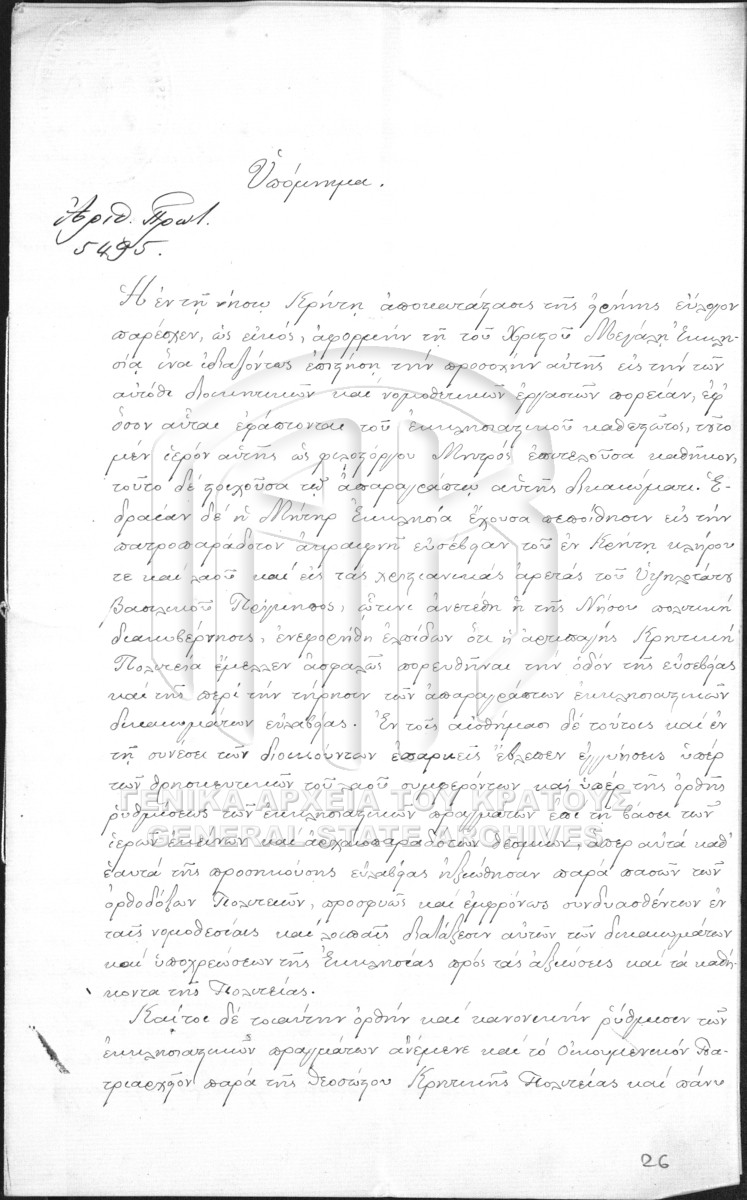 Ὑπόμνημα.
Ἀριθ. Πρωτ.
5495.
Ἡ ἐν τῇ νήσῳ Κρήτῃ ἀποκατάστασις τῆς εἰρήνης εὔλογον
παρέσχεν, ὡς εἰκός, ἀφορμὴν τῇ τοῦ Χριστοῦ Μεγάλῃ Ἐκκλη-
σίᾳ ἵνα ἰδιαζόντως ἐπιστήσῃ τὴν προσοχὴν αὐτῆς εἰς τὴν τῶν
αὐτόθι διοικητικῶν καὶ νομοθετικῶν ἐργασιῶν πορείαν, ἐφ'
ὅσον αὗται ἐφάπτονται τοῦ ἐκκλησιαστικοῦ καθεστῶτος, τοῦτο
μὲν ἱερὸν αὐτῆς ὡς φιλοστόργου Μητρὸς ἐπιτελοῦσα καθῆκον,
τοῦτο δὲ στοιχοῦσα τῷ ἀπαραγράπτῳ αὐτῆς δικαιώματι. Ἑ-
δραίαν δὲ ἡ Μήτηρ Ἐκκλησία ἔχουσα πεποίθησιν εἰς τὴν
πατροπαράδοτον ἀκραιφνῆ εὐσέβειαν τοῦ ἐν Κρήτῃ κλήρου
τε καὶ λαοῦ καὶ εἰς τὰς χριστιανικὰς ἀρετὰς τοῦ Ὑψηλοτάτου
Βασιλικοῦ Πρίγκηπος, ᾧτινι ἀνετέθη ἡ τῆς Νήσου πολιτικὴ
διακυβέρνησις, ἐνεφορήθη ἐλπίδων ὅτι ἡ ἀρτιπαγὴς Κρητικὴ
Πολιτεία ἔμελλεν ἀσφαλῶς πορευθῆναι τὴν ὁδὸν τῆς εὐσεβείας
καὶ τῆς περὶ τὴν τήρησιν τῶν ἀπαραγράπτων ἐκκλησιαστικῶν
δικαιωμάτων εὐλαβείας. Ἐν τοῖς αἰσθήμασι δὲ τούτοις καὶ ἐν
τῇ συνέσει τῶν διοικούντων ἐπαρκεῖς ἔβλεπεν ἐγγυήσεις ὑπὲρ
τῶν θρησκευτικῶν τοῦ λαοῦ συμφερόντων καὶ ὑπὲρ τῆς ὀρθῆς
ῥυθμίσεως τῶν ἐκκλησιαστικῶν πραγμάτων ἐπὶ τῇ βάσει τῶν
ΓΕΝΙΚΑ ΑΡΧΕΙΑ ΤΟΥ ΚΡΑΤΟΥΣ
GENERAL STATE ARCHIVES
ἱερῶν ἐκείνων καὶ ἀρχαιοπαραδότων θεσμῶν, ἅπερ αὐτὰ καθ'
ἑαυτὰ τῆς προσηκούσης εὐλαβείας ἠξιώθησαν παρὰ πασῶν τῶν
ὀρθοδόξων Πολιτειῶν, προσφυῶς καὶ ἐμφρόνως συνδυασθέντων ἐν
ταῖς νομοθεσίαις καὶ λοιπαῖς διατάξεσιν αὐτῶν τῶν δικαιωμάτων
καὶ ὑποχρεώσεων τῆς Ἐκκλησίας πρὸς τὰς ἀξιώσεις καὶ τὰ καθή-
κοντα τῆς Πολιτείας.
Καίτοι δὲ τοιαύτην ὀρθὴν καὶ κανονικὴν ῥύθμισιν τῶν
ἐκκλησιαστικῶν πραγμάτων ἀνέμενε καὶ τὸ Οἰκουμενικὸν Πα-
τριαρχεῖον παρὰ τῆς θεοσώστου Κρητικῆς Πολιτείας καὶ πάνυ
26